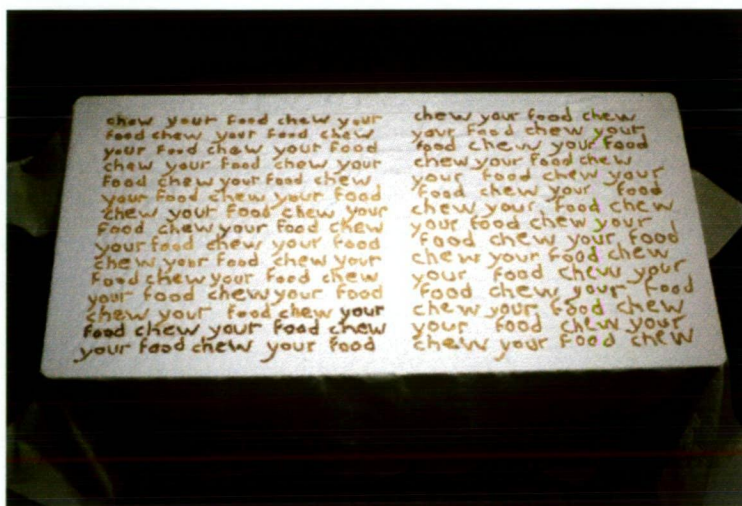 chew your food chew your
food chew your food chew
your food chew your food
chew your food chew your
food chew your food chew
your food chew your food
chew your food chew your
food chew your food chew
your food chew your food
chew your food chew your
food chew your food chew
your food chew your food
chew your food chew your
food chew your food chew
your food chew your food
chew your food chew
your food chew your
food chew your food
chew your food chew
your food chew your
food chew your food
chew your food chew
your food chew your
food chew your food
chew your food chew
your food chew your
food chew your food
chew your food chew
your food chew your
chew your food chew